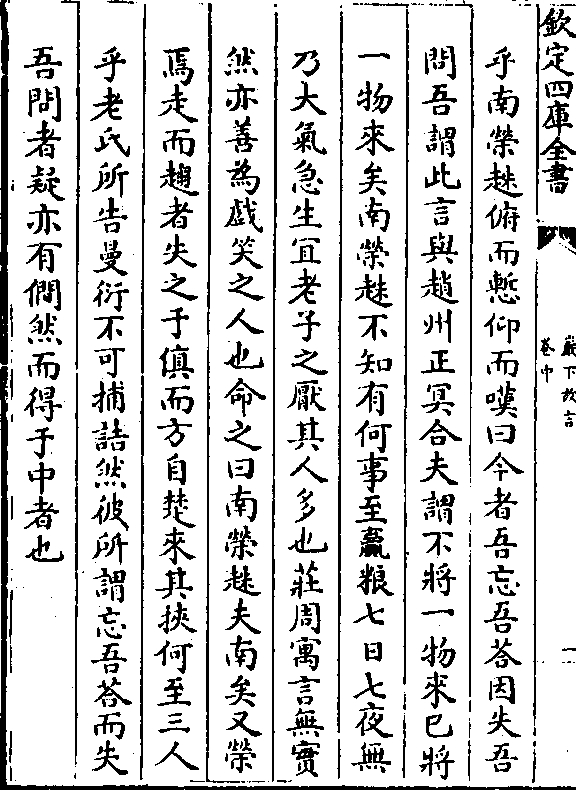 欽定四庫全書
巖下放言
卷中
一
乎南榮趎俯而慙仰而嘆曰今者吾忘吾荅因失吾
問吾謂此言與趙州正冥合夫謂不將一物來已將
一物來矣南榮趎不知有何事至贏粮七日七夜無
乃大氣急生宜老子之厭其人多也莊周寓言無實
然亦善為戲笑之人也命之曰南榮趎夫南矣又榮
焉走而趨者失之于傎而方自楚來其挾何至三人
乎老氏所告曼衍不可捕詰然彼所謂忘吾荅而失
吾問者疑亦有僩然而得于中者也